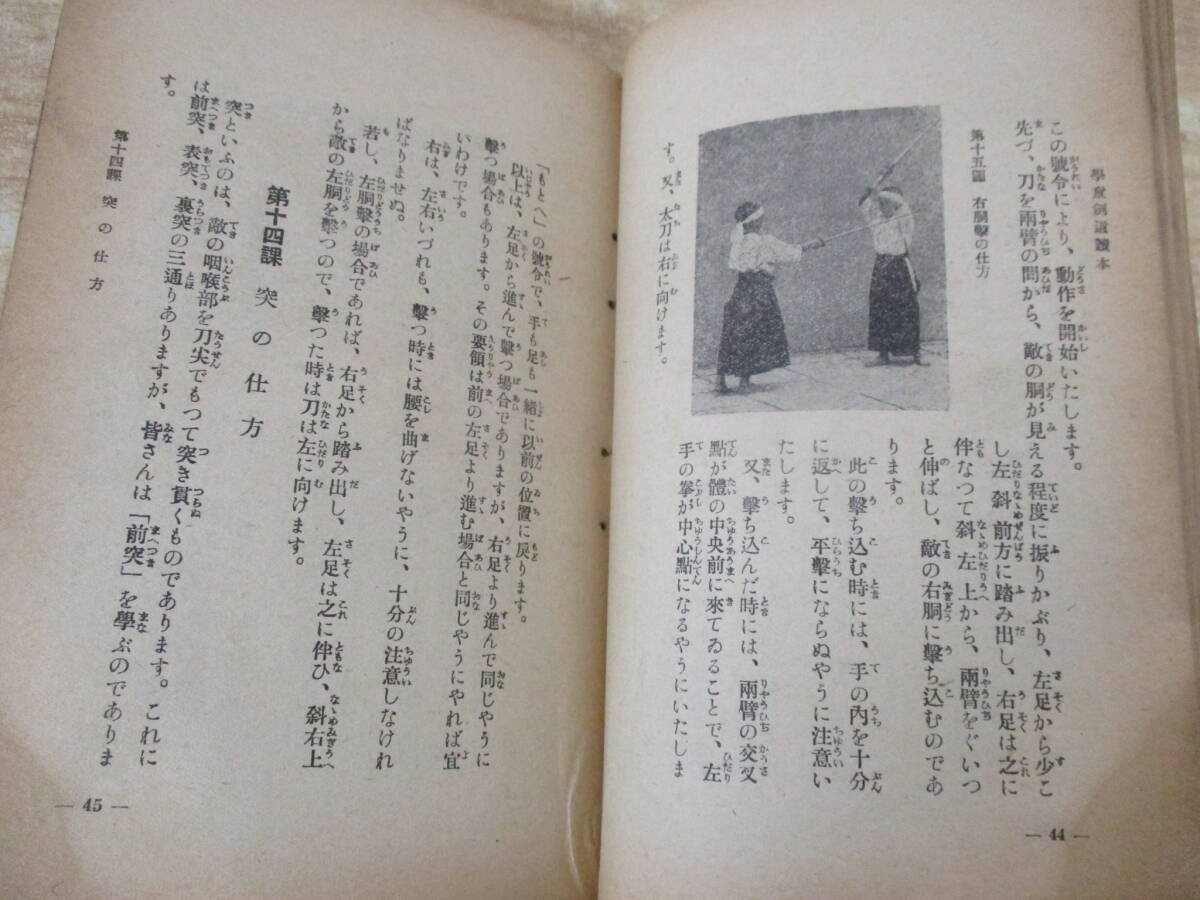 學童劍道讀本
この號令により、動作を開始いたします。
先づ、刀を兩臂の間から、敵の胴が見える程度に振りかぶり、左足から少こ
し左斜前方に踏み出し、右足は之に
伴なつて斜左上から、兩臂をぐいつ
と伸ばし、敵の右胴に擊ち込むのであ
ります。
此の擊ち込む時には、手の內を十分
に返して、平擊にならぬやうに注意い
たします。
又、擊ち込んだ時には、兩臂の交叉
點が體の中央前に來てゐることで、左
手の拳が中心點になるやうにいたしま
第十五圖 右胴擊の仕方
す。又、太刀は右に向けます。
— 44 —
「もとへ」の號令で、手も足も一緖に以前の位置に戾ります。
以上は、左足から進んで擊つ場合でありますが、右足より進んで同じやうに
擊つ場合もあります。その要領は前の左足より進む場合と同じやうにやれば宜
いわけです。
右は、左右いづれも、擊つ時には腰を曲げないやうに、十分の注意しなけれ
ばなりませぬ。
若し、左胴擊の場合であれば、右足から踏み出し、左足は之に伴ひ、斜右上
から敵の左胴を擊つので、擊つた時は刀は左に向けます。
第十四課 突の仕方
突といふのは、敵の咽喉部を刀尖でもつて突き貫くものであります。これに
は前突、表突、裏突の三通りありますが、皆さんは「前突」を學ぶのでありま
す。
第十四課 突の仕方
— 45 —